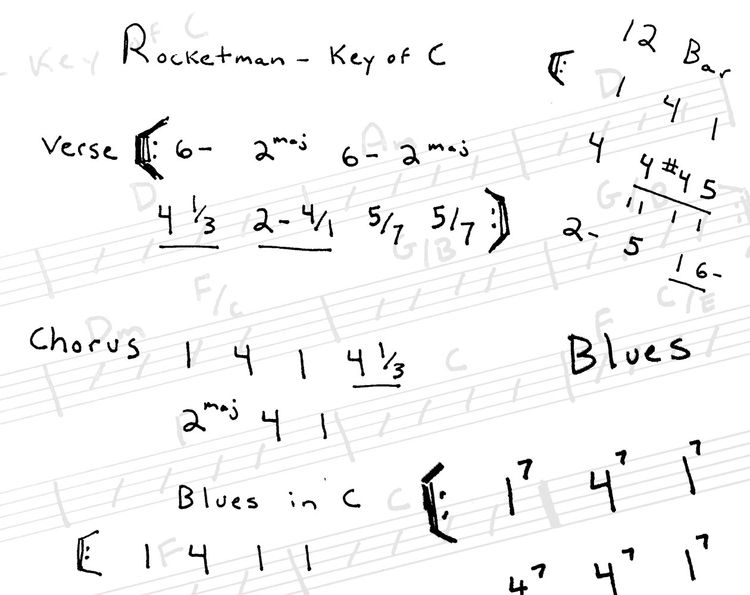 Rocketman - Key of C
Verse 𝄆 6- 2maj 6- 2maj
4 1/3 2- 4/1 5/7 5/7 𝄇
Chorus 1 4 1 4 1/3
2maj 4 1
Blues in C
𝄆 1 4 1 1
12 Bar
𝄆 1 4 1
4 4 #4 5
2- 5 1 6-
Blues
𝄆 1⁷ 4⁷ 1⁷
4⁷ 4⁷ 1⁷
Key of C
D
Am
D
G/B
G/B
F/C
C/E
Dm
F
C
C
F